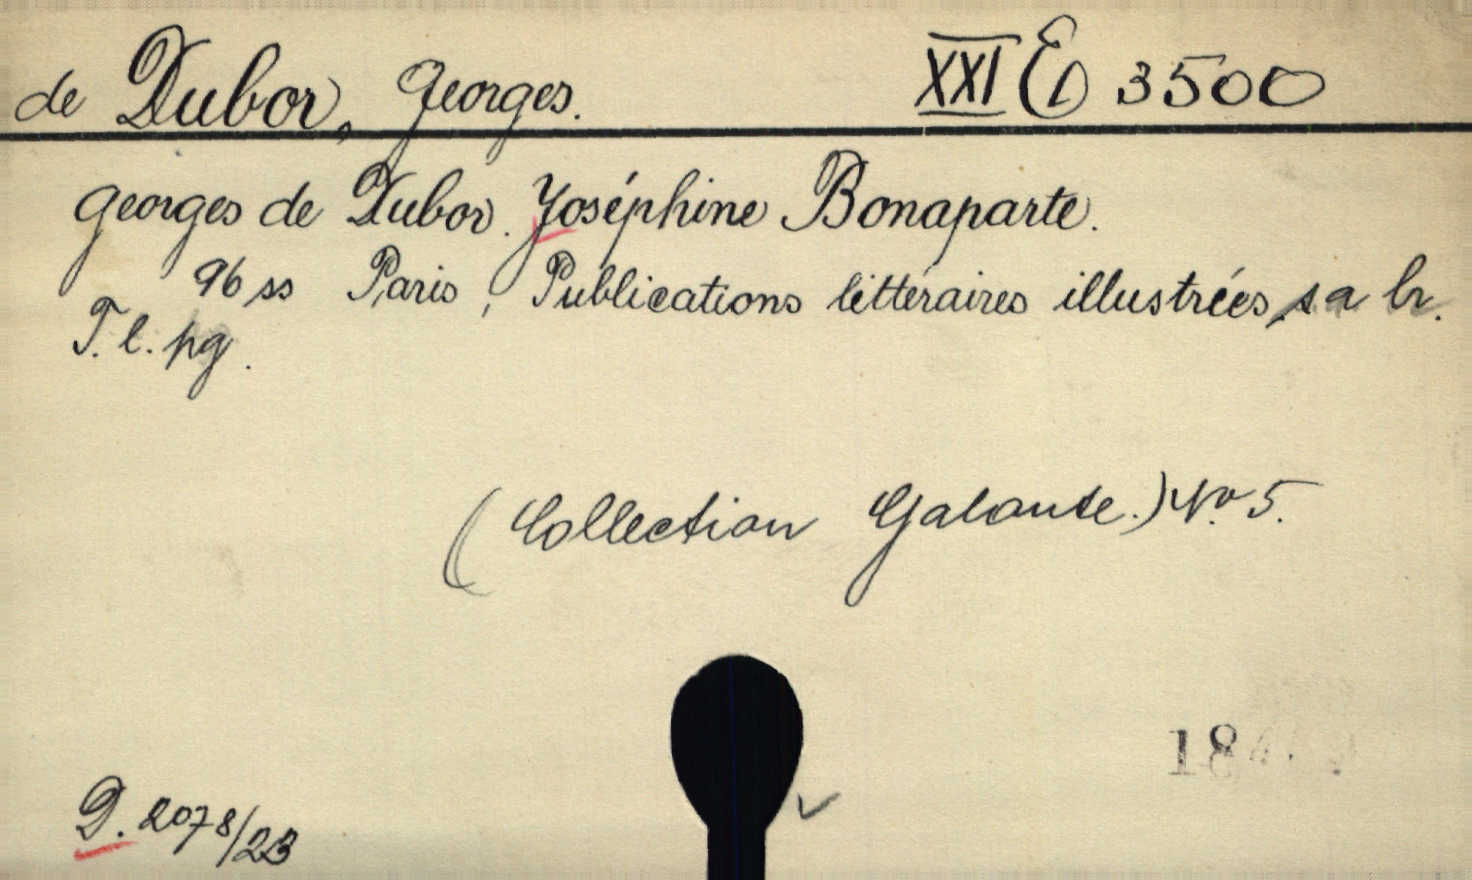 de Dubor, Georges. XXI E 3500
Georges de Dubor. Joséphine Bonaparte.
96 ss Paris, Publications littéraires illustrées, s a br.
T. l. pg.
(Collection Galante.) No 5.
18
D. 2078/23